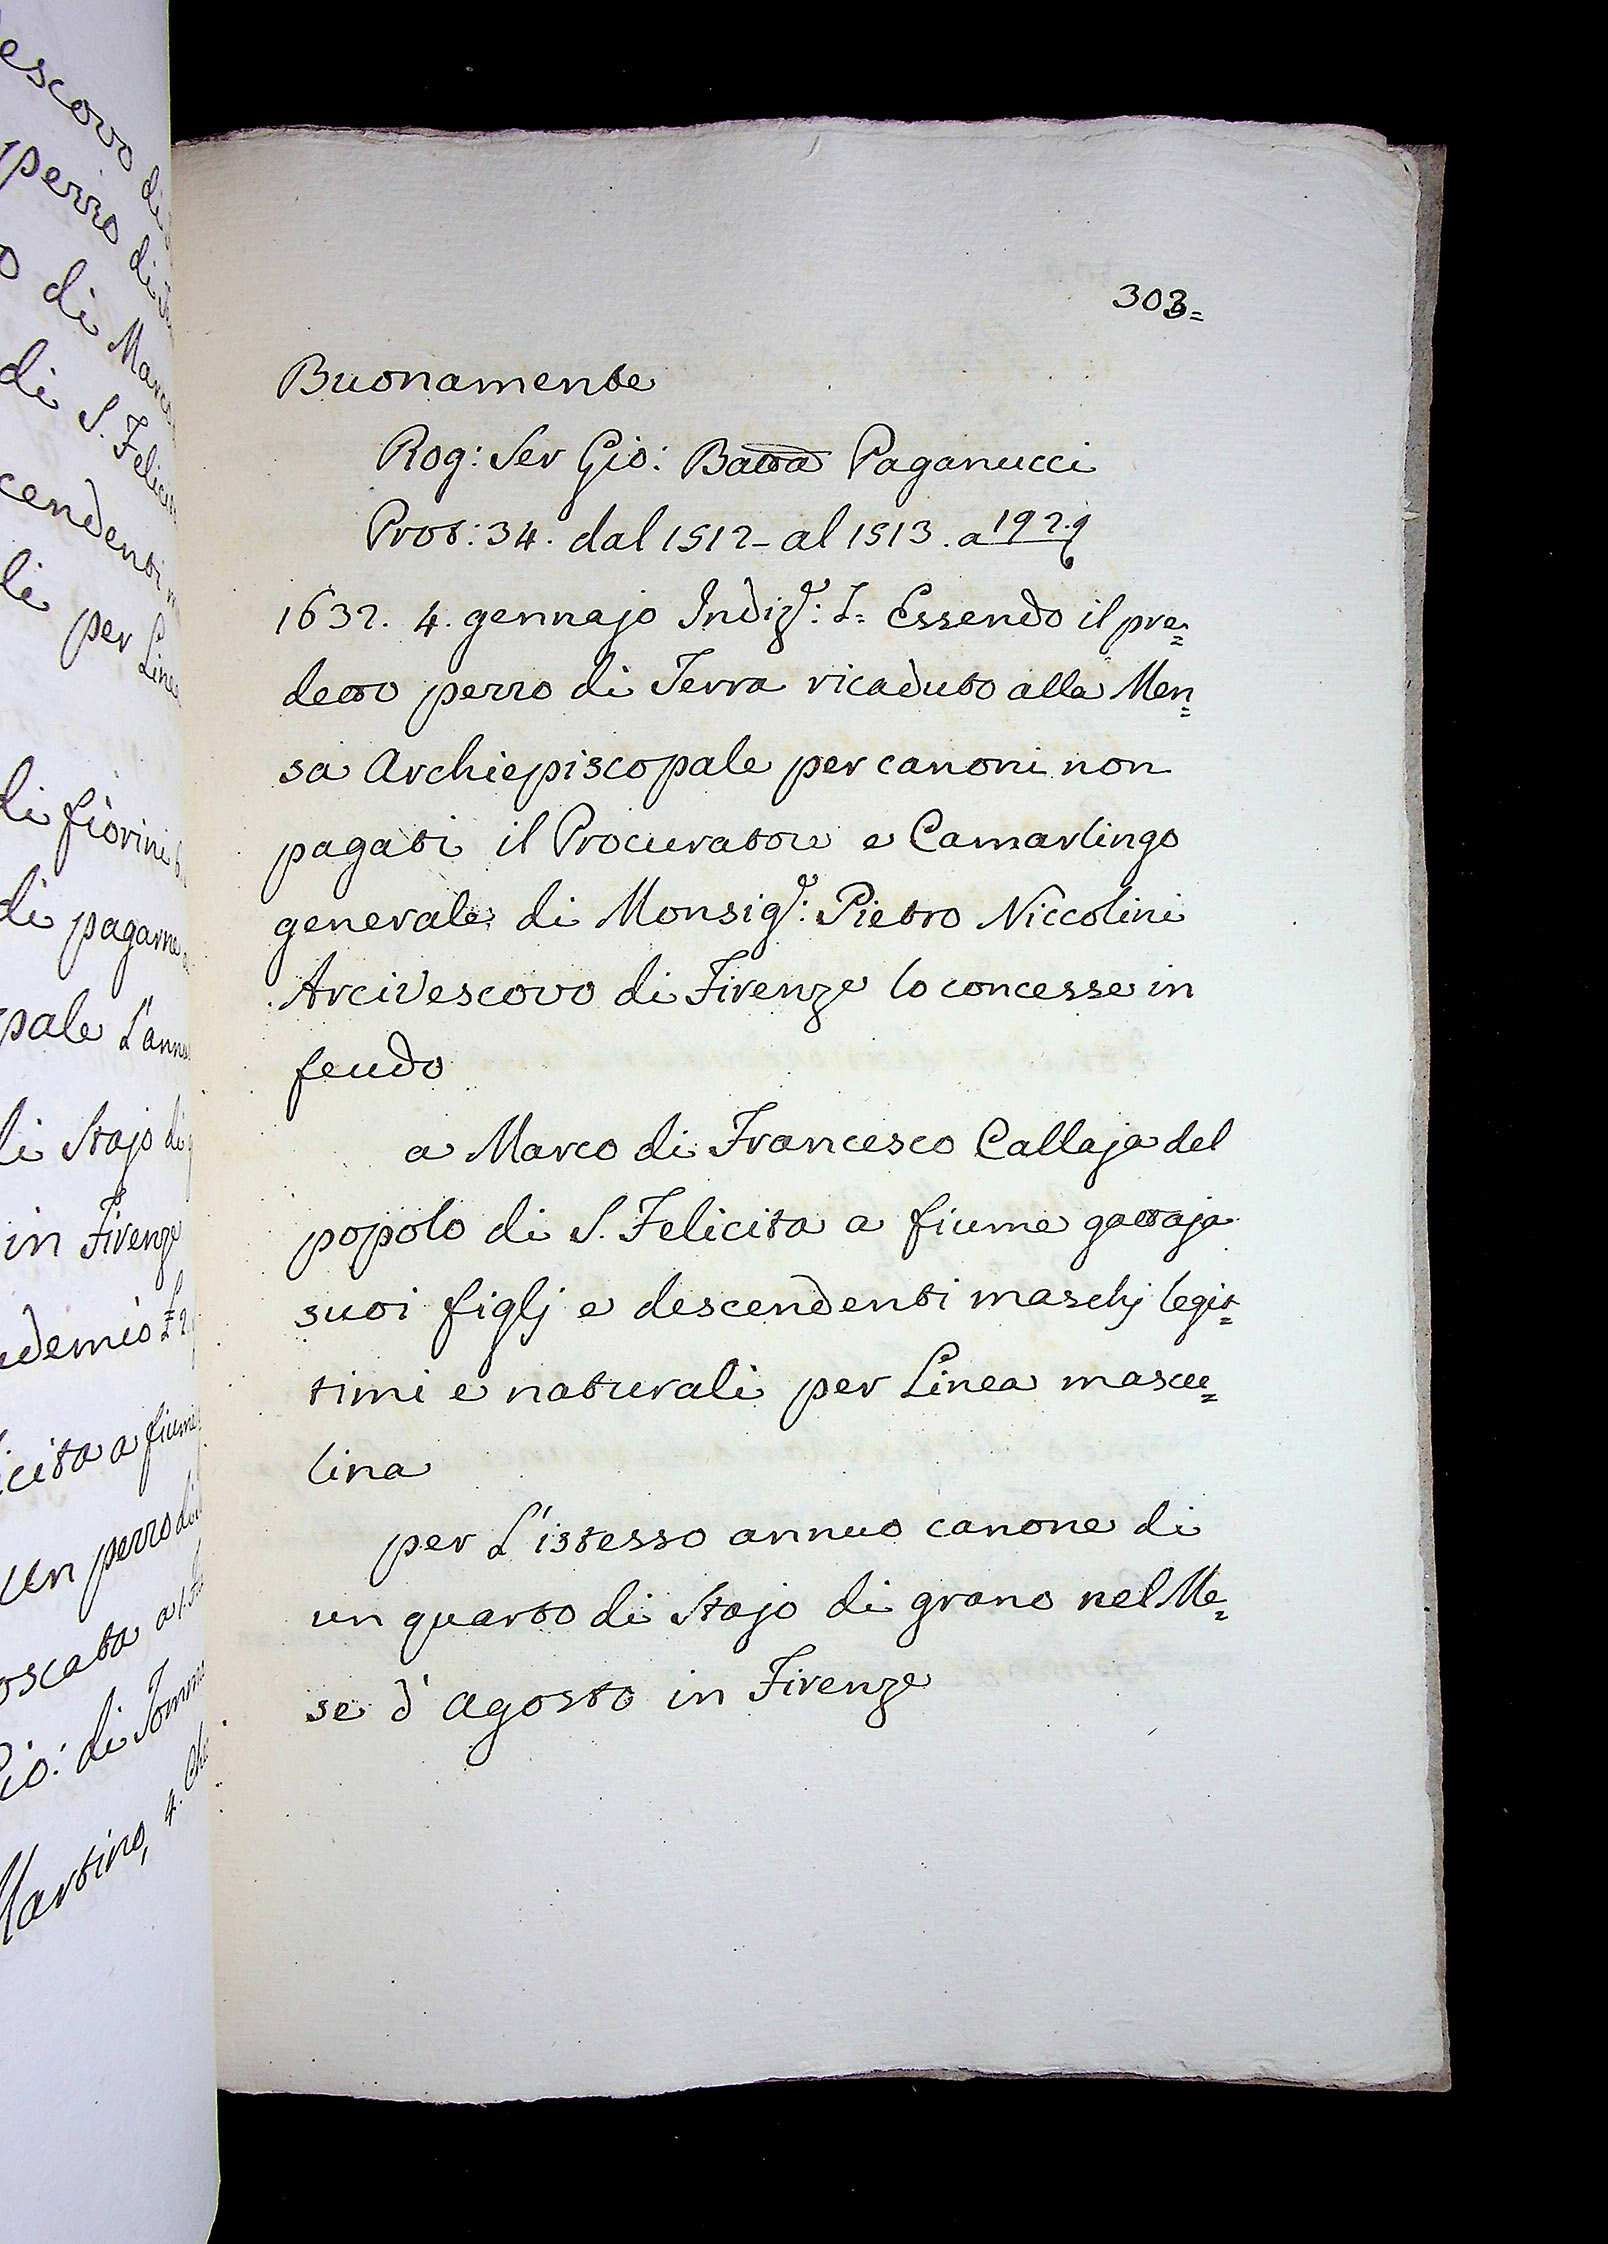 escovo di
pezzo di
o di Marco
di S. Felici
cendenti
li per Line
di fiorini
di pagarne
pale L'anno
di Stajo di
in Firenze
icita a fiume
un pezzo di
Gio: di Tomma
Martino, 4.
303=
Buonamente
Rog: Ser Gio: Batta Paganucci
Prot: 34. dal 1512 - al 1513. a 192.
1632. 4. gennajo Indize: I= Essendo il pre=
detto pezzo di Terra ricaduto alla Men=
sa Archiepiscopale per canoni non
pagati il Procuratore e Camarlingo
generale di Monsige: Pietro Niccolini
Arcivescovo di Firenze lo concesse in
feudo
a Marco di Francesco Callaja del
popolo di S. Felicita a fiume gattaja
suoi figlj e descendenti maschj legit=
timi e naturali per Linea mascu=
lina
per L'istesso annuo canone di
un quarto di Stajo di grano nel Me=
se d'Agosto in Firenze